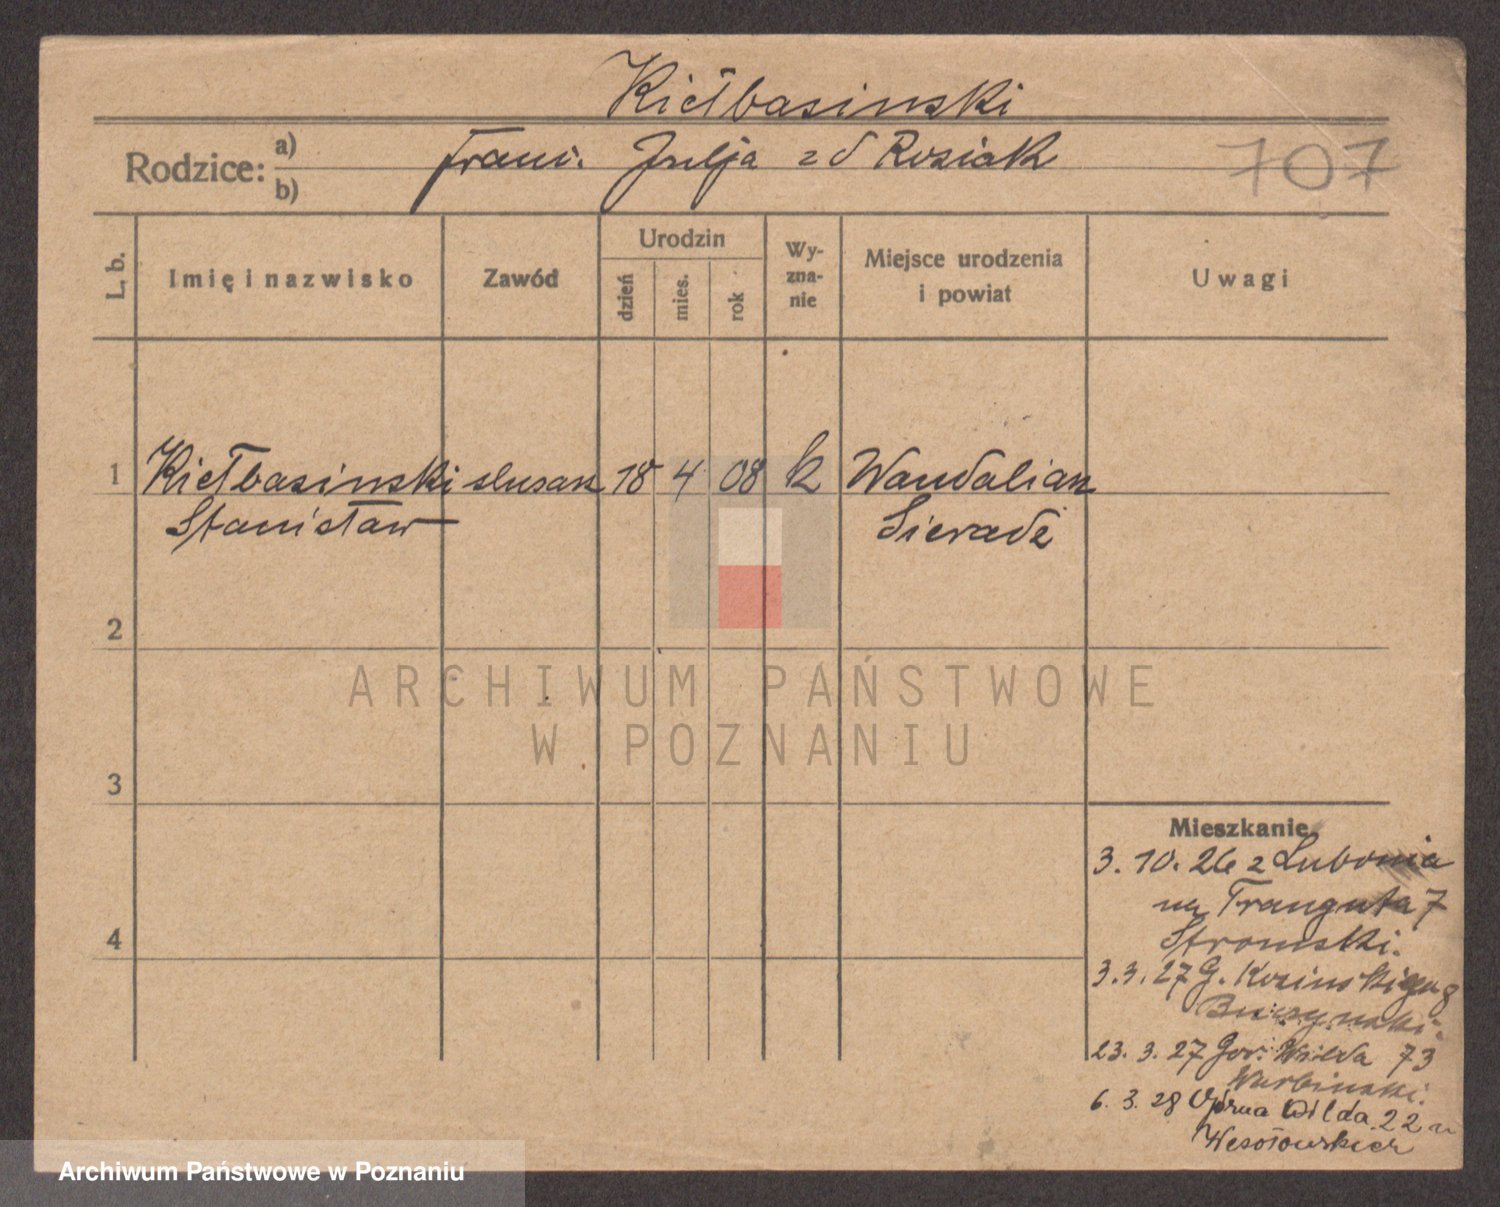 Kiełbasinski
Rodzice: a) b)
Franc. Julja z d Rosiak
707
L. b.
Imię i nazwisko
Zawód
Urodzin
dzień
mies.
rok
Wy-
zna-
nie
Miejsce urodzenia
i powiat
Uwagi
1 Kiełbasinski ślusarz 18 4 08 k Wandalian
Stanisław Sieradź
2
3
4
ARCHIWUM PAŃSTWOWE
W POZNANIU
Mieszkanie.
3. 10. 26 z Lubonia
na Trauguta 7
Stromski.
3. 3. 27 G. Kosinskiego 8
Buczynski.
23. 3. 27 Gór. Wilda 73
Warbinski.
6. 3. 28 Górna Wilda 22 u
Wesołowskiej
Archiwum Państwowe w Poznaniu